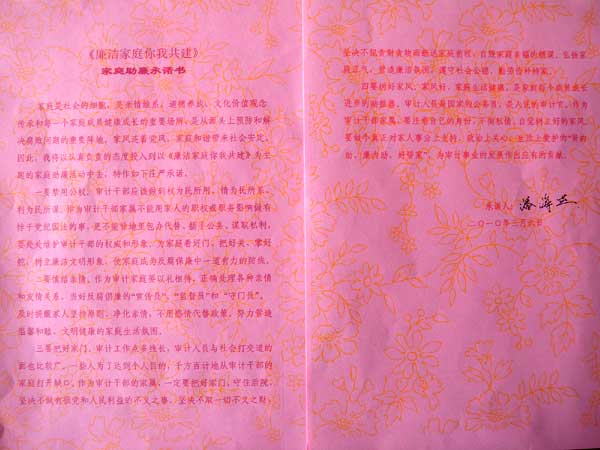 《廉洁家庭你我共建》
家庭助廉承诺书
家庭是社会的细胞，是亲情维系、道德养成、文化价值观念
传承和每一个家庭成员健康成长的重要场所，是从源头上预防和解
决腐败问题的重要阵地。家风连着党风，家庭和谐带来社会安定。
因此，我将以认真负责的态度投入到以《廉洁家庭你我共建》为主
题的家庭助廉活动中去，特作如下庄严承诺。
一要禁用公权。审计干部应该做到权为民所用、情为民所系、
利为民所谋。作为审计干部家属不能用家人的职权或职务影响做有
悖于党纪国法的事，更不能
要处处维护审计干部的权威和形象，为家庭看好门、把好关、掌好
舵，树立廉洁文明形象，使家庭成为反腐保廉中一道有力的防线。
二要慎结亲情。作为审计家庭要以礼相待，正确处理各种亲情
和友情关系，当好反腐倡廉的“宣传员”、“监督员”和“守门员”。
及时提醒家人坚持原则、净化亲情，不用感情代替政策，努力营造
温馨和睦、文明健康的家庭生活氛围。
三要把好家门。审计工作点多线长，审计人员与社会打交道的
面也比较广。一些人为了达到个人目的，千方百计地从审计干部的
家庭打开缺口。作为审计干部的家属，一定要把好家门，守住后院，
坚决不做有损党和人民利益的不义之事，坚决不取一切不义之财，
坚决不能贪财贪物而断送家庭前程，自毁家庭幸福的根基。弘扬家
庭正气，营造廉洁氛围，遵守社会公德，勤劳俭朴持家。
四要树好家风。家风好，家庭生活健康，是家庭每个成员成长
进步的助推器。审计人员是国家的公务员，是人民的审计工。作为
审计干部家属，要注意自己的身份，不徇私情，自觉树立好的家风。
要做个真正对家人事业上支持、政治上关心、生活上爱护的“贤内
助、廉内助、好管家”，为审计事业的发展作出应有的贡献。
承诺人：
二〇一〇年三月六日